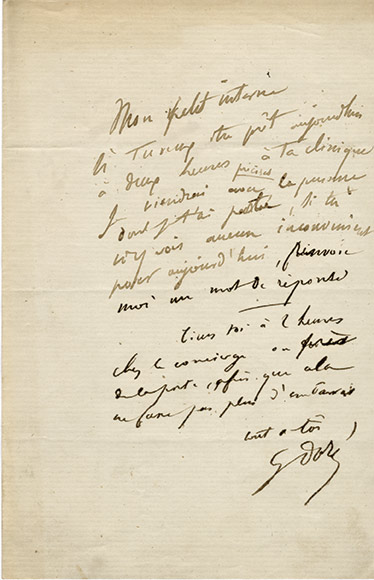 Mon petit interne
Si tu veux être prêt aujourd'hui
à deux heures précises à ta clinique
Je viendrai avec la personne
dont je t'ai parlé, si tu
n'y vois aucun inconvénient
pour aujourd'hui, renvoie
moi un mot de réponse
tiens toi à 2 heures
chez le concierge ou
de la porte, afin que cela
ne fasse pas plus d'embarras
tout à toi
G Doré